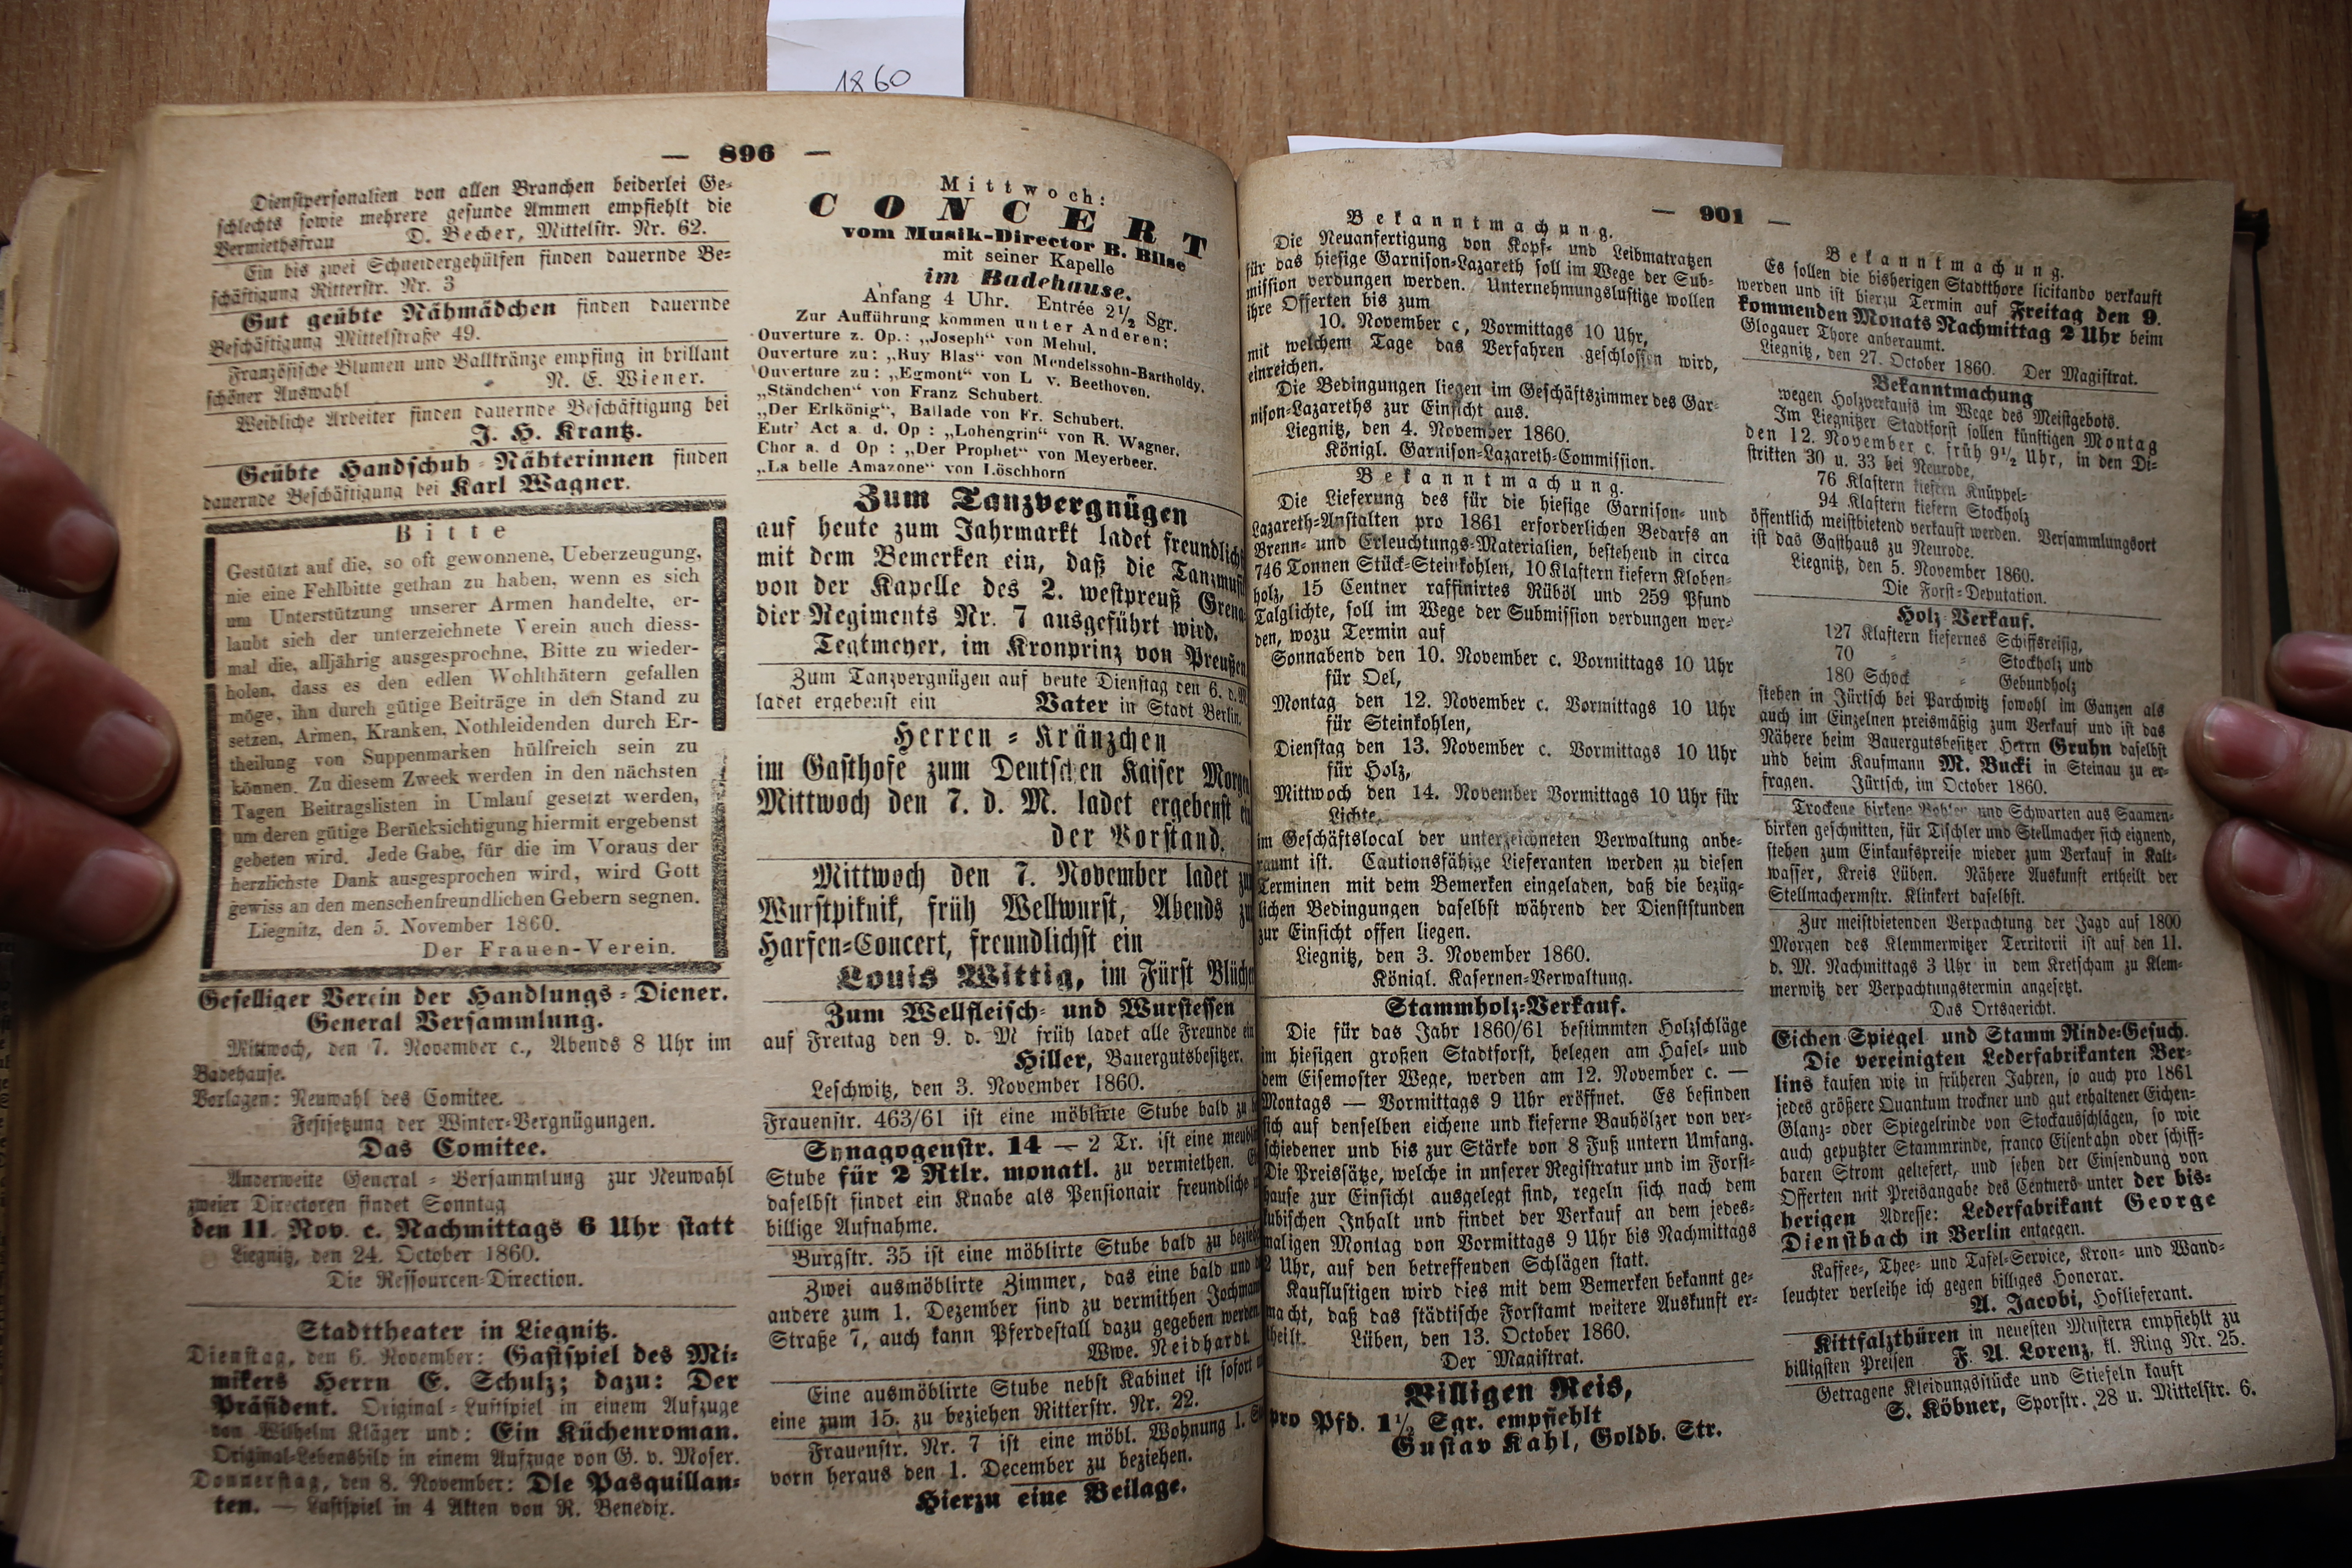 1860
— 896 —
Dienstpersonalien von allen Branchen beiderlei Ge-
schlechts sowie mehrere gesunde Ammen empfiehlt die
Vermiethsfrau D. Becher, Mittelstr. Nr. 62.
Ein bis zwei Schneidergehülfen finden dauernde Be-
schäftigung Ritterstr. Nr. 3
Gut geübte Nähmädchen finden dauernde
Beschäftigung Mittelstraße 49.
Französische Blumen und Ballkränze empfing in brillant
schöner Auswahl N. E. Wiener.
Weibliche Arbeiter finden dauernde Beschäftigung bei
J. H. Krantz.
Geübte Handschuh-Nähterinnen finden
dauernde Beschäftigung bei Karl Wagner.
Bitte
Gestützt auf die, so oft gewonnene, Ueberzeugung,
nie eine Fehlbitte gethan zu haben, wenn es sich
um Unterstützung unserer Armen handelte, er-
laubt sich der unterzeichnete Verein auch diess-
mal die, alljährig ausgesprochne, Bitte zu wieder-
holen, dass es den edlen Wohlthätern gefallen
möge, ihn durch gütige Beiträge in den Stand zu
setzen, Armen, Kranken, Nothleidenden durch Er-
theilung von Suppenmarken hülfreich sein zu
können. Zu diesem Zweck werden in den nächsten
Tagen Beitragslisten in Umlauf gesetzt werden,
um deren gütige Berücksichtigung hiermit ergebenst
gebeten wird. Jede Gabe, für die im Voraus der
herzlichste Dank ausgesprochen wird, wird Gott
gewiss an den menschenfreundlichen Gebern segnen.
Liegnitz, den 5. November 1860.
Der Frauen-Verein.
Geselliger Verein der Handlungs-Diener.
General Versammlung.
Mittwoch, den 7. November c., Abends 8 Uhr im
Badehause.
Vorlagen: Neuwahl des Comitee.
Festsetzung der Winter-Vergnügungen.
Das Comitee.
Anderweite General-Versammlung zur Neuwahl
zweier Directoren findet Sonntag
den 11. Nov. c. Nachmittags 6 Uhr statt
Liegnitz, den 24. October 1860.
Die Ressourcen-Direction.
Stadttheater in Liegnitz.
Dienstag, den 6. November: Gastspiel des Mi-
mikers Herrn E. Schulz; dazu: Der
Präsident. Original-Lustspiel in einem Aufzuge
von Wilhelm Kläger und: Ein Küchenroman.
Original-Lebensbild in einem Aufzuge von G. v. Moser.
Donnerstag, den 8. November: Die Pasquillan-
ten. — Lustspiel in 4 Akten von R. Benedix.
Mittwoch:
CONCERT
vom Musik-Director B. Bilse
mit seiner Kapelle
im Badehause.
Anfang 4 Uhr. Entrée 2½ Sgr.
Zur Aufführung kommen unter Anderen:
Ouverture z. Op.: „Joseph“ von Mehul.
Ouverture zu: „Ruy Blas“ von Mendelssohn-Bartholdy.
Ouverture zu: „Egmont“ von L v. Beethoven.
„Ständchen“ von Franz Schubert.
„Der Erlkönig“, Ballade von Fr. Schubert.
Entr' Act a. d. Op : „Lohengrin“ von R. Wagner.
Chor a. d Op : „Der Prophet“ von Meyerbeer.
„La belle Amazone“ von Löschhorn
Zum Tanzvergnügen
auf heute zum Jahrmarkt ladet freundlichst
mit dem Bemerken ein, daß die Tanzmusik
von der Kapelle des 2. westpreuß Grena-
dier-Regiments Nr. 7 ausgeführt wird.
Tegtmeyer, im Kronprinz von Preußen
Zum Tanzvergnügen auf heute Dienstag den 6. d. M
ladet ergebenst ein Vater in Stadt Berlin.
Herren-Kränzchen
im Gasthofe zum Deutschen Kaiser Morgen
Mittwoch den 7. d. M. ladet ergebenst ein
der Vorstand.
Mittwoch den 7. November ladet zum
Wurstpiknik, früh Wellwurst, Abends zum
Harfen-Concert, freundlichst ein
Louis Wittig, im Fürst Blücher
Zum Wellfleisch- und Wurstessen
auf Freitag den 9. d. M früh ladet alle Freunde ein
Hiller, Bauergutsbesitzer.
Leschwitz, den 3. November 1860.
Frauenstr. 463/61 ist eine möblirte Stube bald zu
Synagogenstr. 14 — 2 Tr. ist eine meublirte
Stube für 2 Rtlr. monatl. zu vermiethen.
daselbst findet ein Knabe als Pensionair freundliche
billige Aufnahme.
Burgstr. 35 ist eine möblirte Stube bald zu beziehen
Zwei ausmöblirte Zimmer, das eine bald und
andere zum 1. Dezember sind zu vermithen Jochmann
Straße 7, auch kann Pferdestall dazu gegeben werden
Wwe. Neidhardt.
Eine ausmöblirte Stube nebst Kabinet ist sofort
eine zum 15. zu beziehen Ritterstr. Nr. 22.
Frauenstr. Nr. 7 ist eine möbl. Wohnung 1.
vorn heraus den 1. December zu beziehen.
Hierzu eine Beilage.
— 901 —
Bekanntmachung.
Die Neuanfertigung von Kopf- und Leibmatratzen
für das hiesige Garnison-Lazareth soll im Wege der Sub-
mission verdungen werden. Unternehmungslustige wollen
ihre Offerten bis zum
10. November c, Vormittags 10 Uhr,
mit welchem Tage das Verfahren geschlossen wird,
einreichen.
Die Bedingungen liegen im Geschäftszimmer des Gar-
nison-Lazareths zur Einsicht aus.
Liegnitz, den 4. November 1860.
Königl. Garnison-Lazareth-Commission.
Bekanntmachung.
Die Lieferung des für die hiesige Garnison- und
Lazareth-Anstalten pro 1861 erforderlichen Bedarfs an
Brenn- und Erleuchtungs-Materialien, bestehend in circa
746 Tonnen Stück-Steinkohlen, 10 Klaftern kiefern Kloben-
holz, 15 Centner raffinirtes Rüböl und 259 Pfund
Talglichte, soll im Wege der Submission verdungen wer-
den, wozu Termin auf
Sonnabend den 10. November c. Vormittags 10 Uhr
für Oel,
Montag den 12. November c. Vormittags 10 Uhr
für Steinkohlen,
Dienstag den 13. November c. Vormittags 10 Uhr
für Holz,
Mittwoch den 14. November Vormittags 10 Uhr für
Lichte,
im Geschäftslocal der unterzeichneten Verwaltung anbe-
raumt ist. Cautionsfähige Lieferanten werden zu diesen
Terminen mit dem Bemerken eingeladen, daß die bezüg-
lichen Bedingungen daselbst während der Dienststunden
zur Einsicht offen liegen.
Liegnitz, den 3. November 1860.
Königl. Kasernen-Verwaltung.
Stammholz-Verkauf.
Die für das Jahr 1860/61 bestimmten Holzschläge
im hiesigen großen Stadtforst, belegen am Hasel- und
dem Eisemoster Wege, werden am 12. November c. —
Montags — Vormittags 9 Uhr eröffnet. Es befinden
sich auf denselben eichene und kieferne Bauhölzer von ver-
schiedener und bis zur Stärke von 8 Fuß untern Umfang.
Die Preissätze, welche in unserer Registratur und im Forst-
hause zur Einsicht ausgelegt sind, regeln sich nach dem
kubischen Inhalt und findet der Verkauf an dem jedes-
maligen Montag von Vormittags 9 Uhr bis Nachmittags
2 Uhr, auf den betreffenden Schlägen statt.
Kauflustigen wird dies mit dem Bemerken bekannt ge-
macht, daß das städtische Forstamt weitere Auskunft er-
theilt. Lüben, den 13. October 1860.
Der Magistrat.
Billigen Reis,
pro Pfd. 1½ Sgr. empfiehlt
Gustav Kahl, Goldb. Str.
Bekanntmachung.
Es sollen die bisherigen Stadtthore licitando verkauft
werden und ist hierzu Termin auf Freitag den 9.
kommenden Monats Nachmittag 2 Uhr beim
Glogauer Thore anberaumt.
Liegnitz, den 27. October 1860. Der Magistrat.
Bekanntmachung
wegen Holzverkaufs im Wege des Meistgebots.
Im Liegnitzer Stadtforst sollen künftigen Montag
den 12. November c. früh 9½ Uhr, in den Di-
strikten 30 u. 33 bei Neurode,
76 Klaftern kiefern Knüppel-
94 Klaftern kiefern Stockholz
öffentlich meistbietend verkauft werden. Versammlungsort
ist das Gasthaus zu Neurode.
Liegnitz, den 5. November 1860.
Die Forst-Deputation.
Holz-Verkauf.
127 Klaftern kiefernes Schiffsreisig,
70 " " Stockholz und
180 Schock " Gebundholz
stehen in Jürtsch bei Parchwitz sowohl im Ganzen als
auch im Einzelnen preismäßig zum Verkauf und ist das
Nähere beim Bauergutsbesitzer Herrn Gruhn daselbst
und beim Kaufmann M. Bucki in Steinau zu er-
fragen. Jürtsch, im October 1860.
Trockene birkene Bohlen und Schwarten aus Saamen-
birken geschnitten, für Tischler und Stellmacher sich eignend,
stehen zum Einkaufspreise wieder zum Verkauf in Kalt-
wasser, Kreis Lüben. Nähere Auskunft ertheilt der
Stellmachermstr. Klinkert daselbst.
Zur meistbietenden Verpachtung der Jagd auf 1800
Morgen des Klemmerwitzer Territorii ist auf den 11.
d. M. Nachmittags 3 Uhr in dem Kretscham zu Klem-
merwitz der Verpachtungstermin angesetzt.
Das Ortsgericht.
Eichen-Spiegel und Stamm Rinde-Gesuch.
Die vereinigten Lederfabrikanten Ber-
lins kaufen wie in früheren Jahren, so auch pro 1861
jedes größere Quantum trockner und gut erhaltener Eichen-
Glanz- oder Spiegelrinde von Stockausschlägen, so wie
auch geputzter Stammrinde, franco Eisenbahn oder schiff-
baren Strom geliefert, und sehen der Einsendung von
Offerten mit Preisangabe des Centners unter der bis-
herigen Adresse: Lederfabrikant George
Dienstbach in Berlin entgegen.
Kaffee-, Thee- und Tafel-Service, Kron- und Wand-
leuchter verleihe ich gegen billiges Honorar.
A. Jacobi, Hoflieferant.
Kittfalzthüren in neuesten Mustern empfiehlt zu
billigsten Preisen F. A. Lorenz, kl. Ring Nr. 25.
Getragene Kleidungsstücke und Stiefeln kauft
S. Köbner, Sporstr. 28 u. Mittelstr. 6.